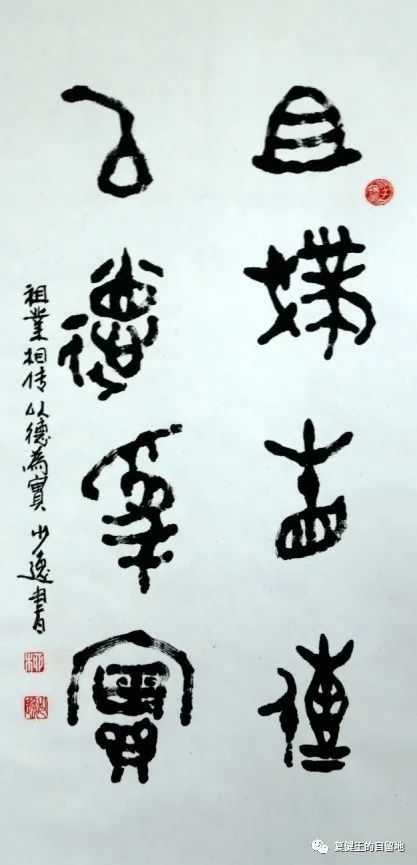 且業相傳
以德為實
祖業相传以德為實 少逸書
健王的自留地